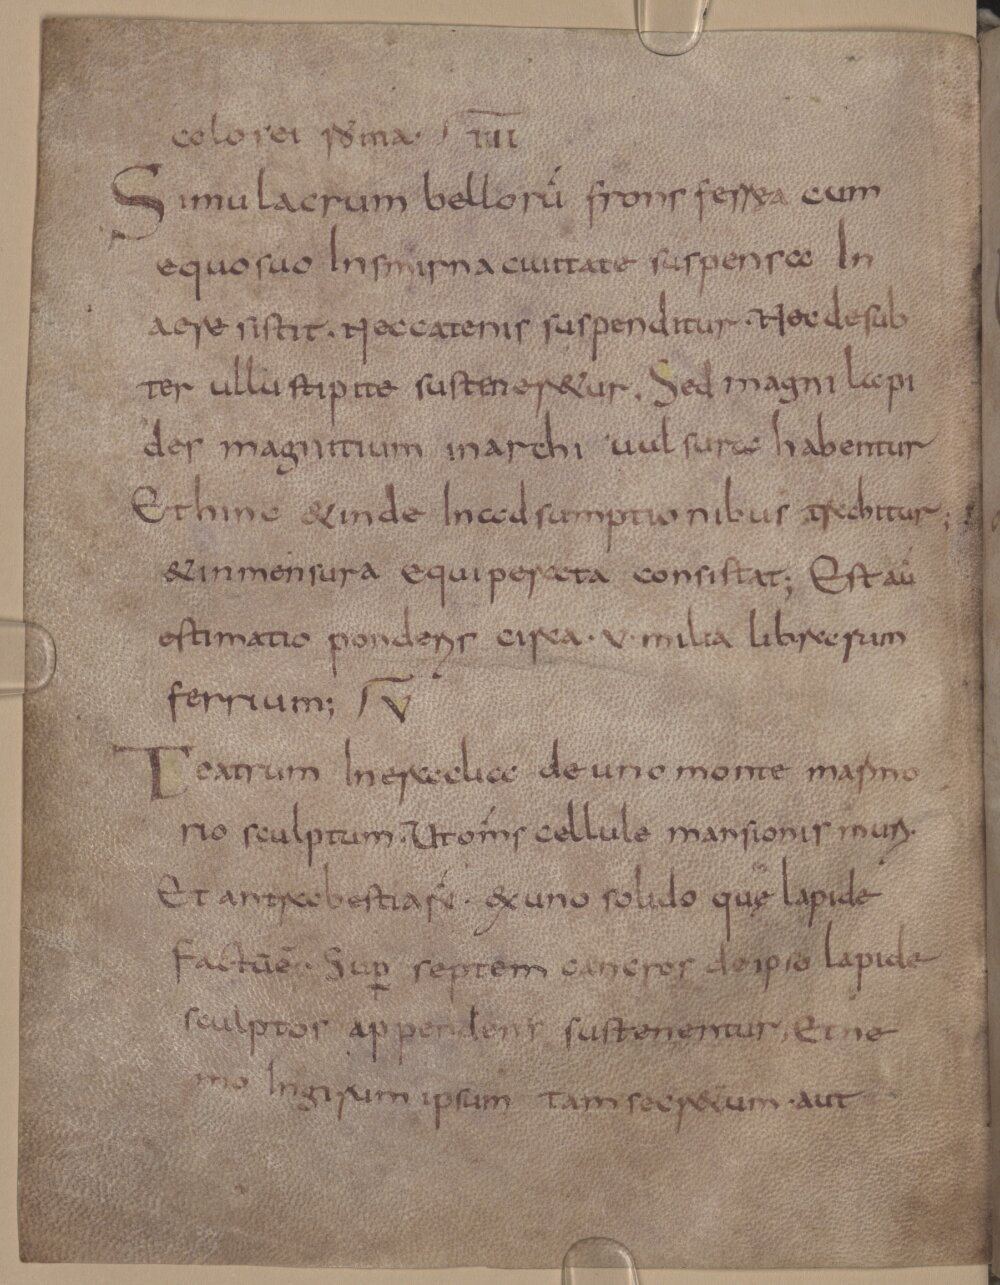 colorei forma · iiii
Simulacrum belloru frons ferrea cum
equo suo In smirna ciuitate suspensa In
aere sistit. Nec catenis suspenditur. Nec de sub
ter ullu stipite sustener&ur. Sed magni lapi
des magnitium in archi uulsuras habentur
Et hinc & inde In adsumptionibus trahitur;
& in mensura equiperata consistat; Est au
estimatio ponderis circa · v · milia librarum
ferrium; v
Teatrum In eraclia de uno monte marmo
rio sculptum. Ut oms cellule mansionis mur.
Et antra bestiaru · & uno solido quę lapide
factu e. Sup septem cancros de ipso lapide
sculptos appendens sustenentur. Et ne
mo In girum ipsum tam secr&um · aut